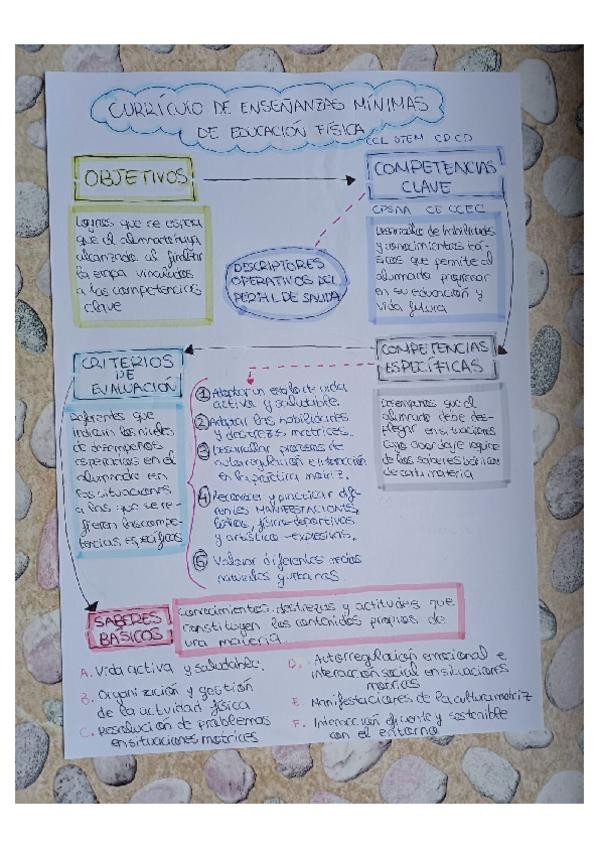 CURRÍCULO DE ENSEÑANZAS MÍNIMAS
DE EDUCACIÓN FÍSICA
CCL STEM CP CD
OBJETIVOS
COMPETENCIAS
CLAVE
CPSAA CE CCEC
Logros que se espera
que el alumnado haya
alcanzado al finalizar
la etapa vinculados
a las competencias
clave
DESCRIPTORES
OPERATIVOS DEL
PERFIL DE SALIDA
Desarrollo de habilidades
y conocimientos bá-
sicos que permite al
alumnado progresar
en su educación y
vida futura
CRITERIOS
DE
EVALUACIÓN
COMPETENCIAS
ESPECÍFICAS
Referentes que
indican los niveles
de desempeños
esperados en el
alumnado en
las situaciones
a las que se re-
fieren las compe-
tencias específicas
1 Adoptar un estilo de vida
activa y saludable.
2 Adaptar las habilidades
y destrezas motrices.
3 Desarrollar procesos de
autorregulación e interacción
en la práctica motriz.
4 Reconocer y practicar dife-
rentes MANIFESTACIONES,
lúdicas, físico-deportivas
y artístico-expresivas.
5 Valorar diferentes medios
naturales y urbanos.
Desempeños que el
alumnado debe des-
plegar en situaciones
cuyo abordaje requiere
de los saberes básicos
de cada materia
SABERES
BÁSICOS
Conocimientos, destrezas y actitudes que
constituyen los contenidos propios de
una materia.
A. Vida activa y saludable.
B. Organización y gestión
de la actividad física
C. Resolución de problemas
en situaciones motrices
D. Autorregulación emocional e
interacción social en situaciones
motrices
E. Manifestaciones de la cultura motriz
F. Interacción eficiente y sostenible
con el entorno